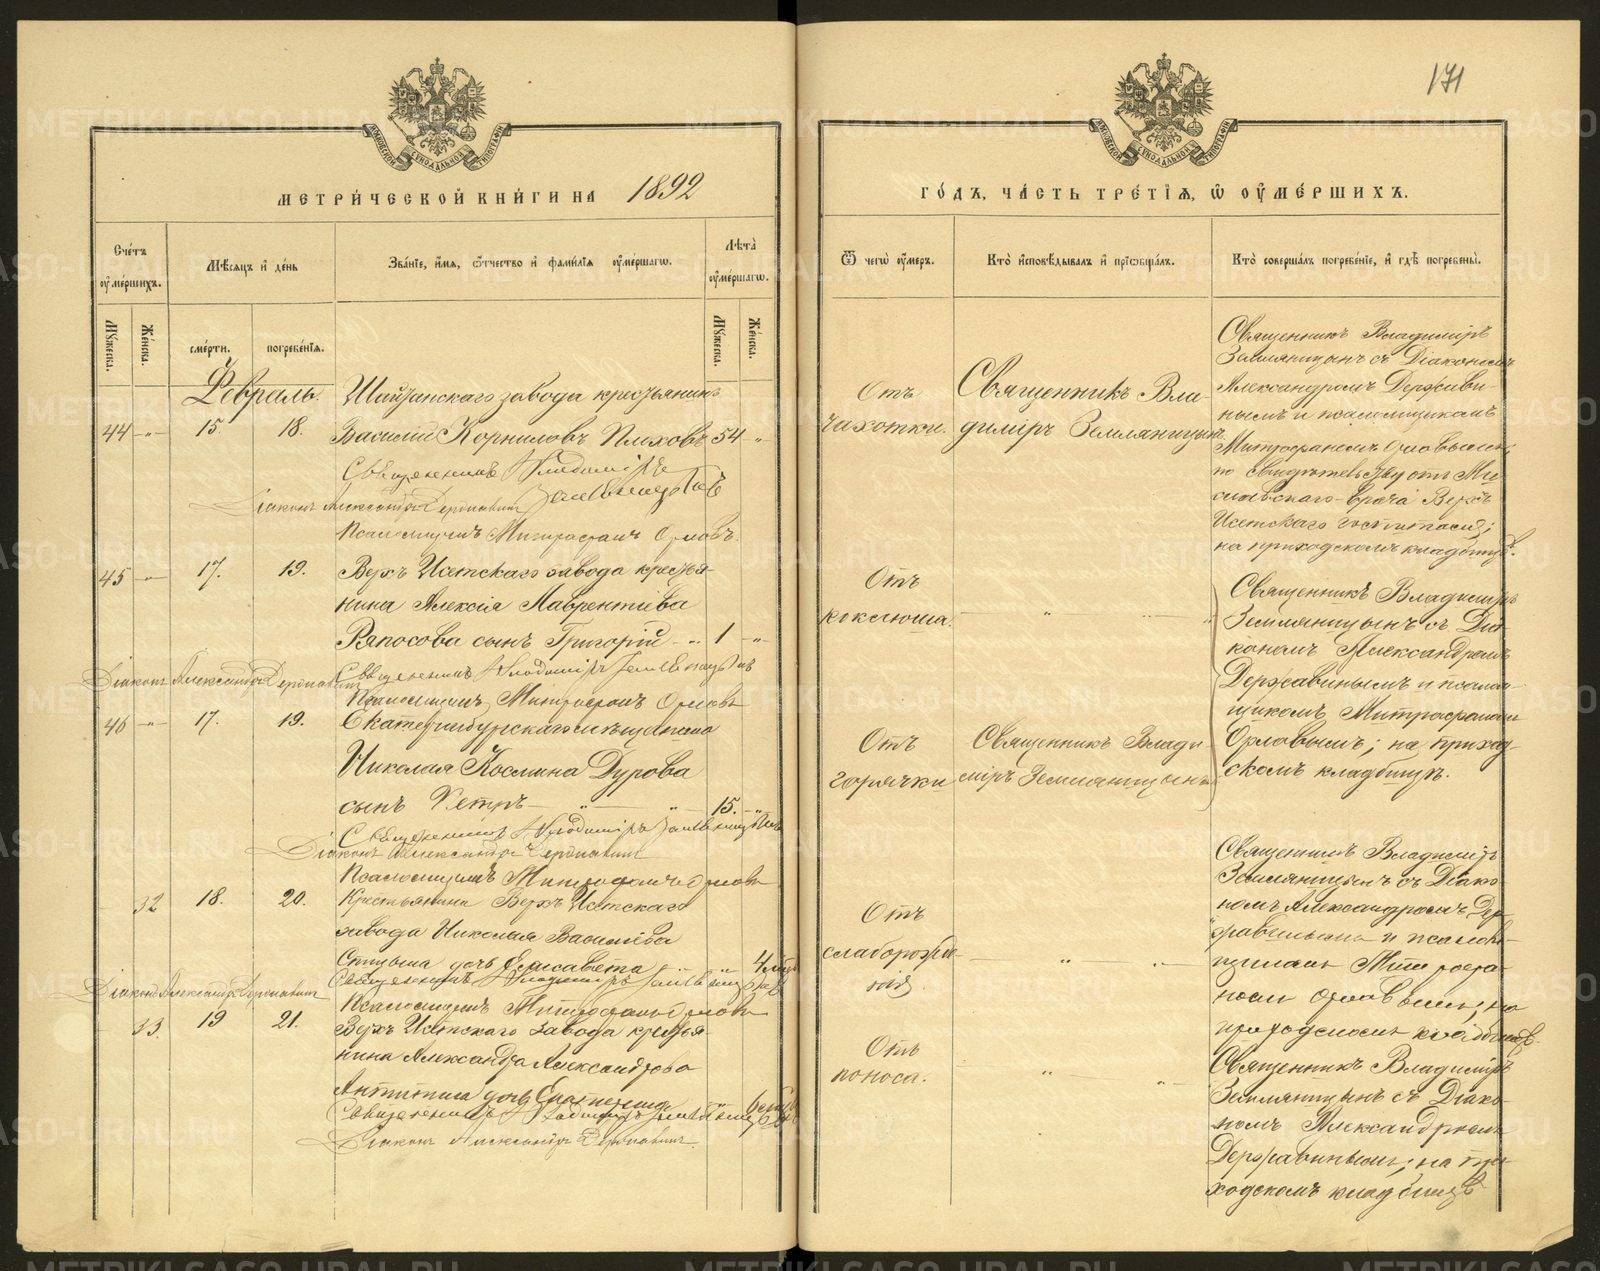 171
МЕТРИ́ЧЕСКОЙ КНИ́ГИ НА 1892
ГО́ДЪ, ЧА́СТЬ ТРЕ́ТІЯ, Ѿ ОУ҆МЕ́РШИХЪ.
Сче́тъ оу҆ме́ршихъ.
Мѣ́сяцъ и҆ де́нь
Зва́ніе, и҆́мя, ѻ҆́тчество и҆ фами́лія оу҆ме́ршагѡ.
Лѣ́та оу҆ме́ршагѡ.
Ѿ чегѡ̀ оу҆́меръ.
Кто̀ и҆сповѣ́дывалъ и҆ пріѡбща́лъ.
Кто̀ соверша́лъ погребе́ніе, и҆ гдѣ̀ погребены̀.
Мꙋ́жеска.
Же́нска.
сме́рти.
погребе́нія.
Мꙋ́жеска.
Же́нска.
Февраль.
44 -"- 15. 18.
Шайтанскаго завода крестьянинъ
Василій Корниловъ Плюховъ 54 "
Священникъ Владиміръ
Земляницынъ
Діаконъ Александръ Державинъ
Псаломщикъ Митрофанъ Орловъ.
Отъ
чахотки.
Священникъ Вла-
диміръ Земляницынъ
Священникъ Владиміръ
Земляницынъ съ Діакономъ
Александромъ Держави-
нымъ и псаломщикомъ
Митрофаномъ Орловымъ,
по свидѣтельству отъ
врача Верхъ
Исетскаго госпиталя;
на приходскомъ кладбищѣ.
45 -"- 17. 19.
Верхъ Исетскаго завода крестья-
нина Алексія Лаврентіева
Ряпосова сынъ Григорій - " 1 -"-
Священникъ Владиміръ Земляницынъ
Діаконъ Александръ Державинъ
Псаломщикъ Митрофанъ Орловъ
Отъ
коклюша.
Священникъ Владиміръ
Земляницынъ съ Діа-
кономъ Александромъ
Державинымъ и псалом-
щикомъ Митрофаномъ
Орловымъ; на приход-
скомъ кладбищѣ.
46 -"- 17. 19.
Екатеринбургскаго мѣщанина
Николая Космина Дурова
сынъ Петръ - " - " - 15. -"-
Священникъ Владиміръ Земляницынъ
Діаконъ Александръ Державинъ
Псаломщикъ Митрофанъ Орловъ
Отъ
горячки
Священникъ Влади-
міръ Земляницынъ
32 18. 20.
Крестьянина Верхъ Исетскаго
завода Николая Василіева
дочь Елисавета " " 4
Священникъ Владиміръ Земляницынъ
Діаконъ Александръ Державинъ
Псаломщикъ Митрофанъ Орловъ
Отъ
слаборожде-
нія.
Священникъ Владиміръ
Земляницынъ съ Діако-
номъ Александромъ Дер-
жавинымъ и псалом-
щикомъ Митрофа-
номъ Орловымъ; на
приходскомъ кладбищѣ.
33. 19 21.
Верхъ Исетскаго завода крестья-
нина Александра Александрова
дочь 6
Священникъ Владиміръ Земляницынъ
Діаконъ Александръ Державинъ.
Отъ
поноса.
Священникъ Владиміръ
Земляницынъ съ Діако-
номъ Александромъ
Державинымъ; на при-
ходскомъ кладбищѣ
METRIKI.GASO-URAL.RU